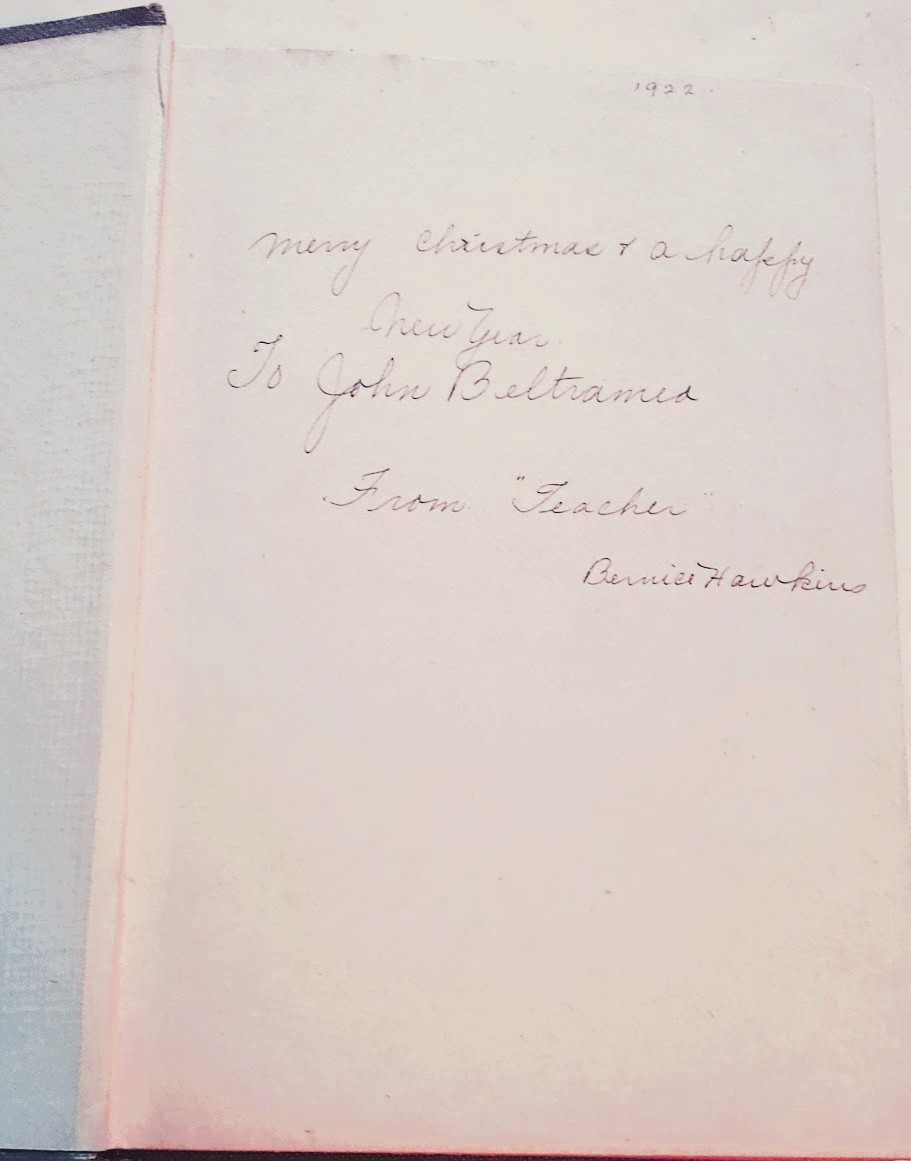 1922.
Merry Christmas & a happy
New Year.
To John Beltrameo
From "Teacher"
Bernice Hawkins